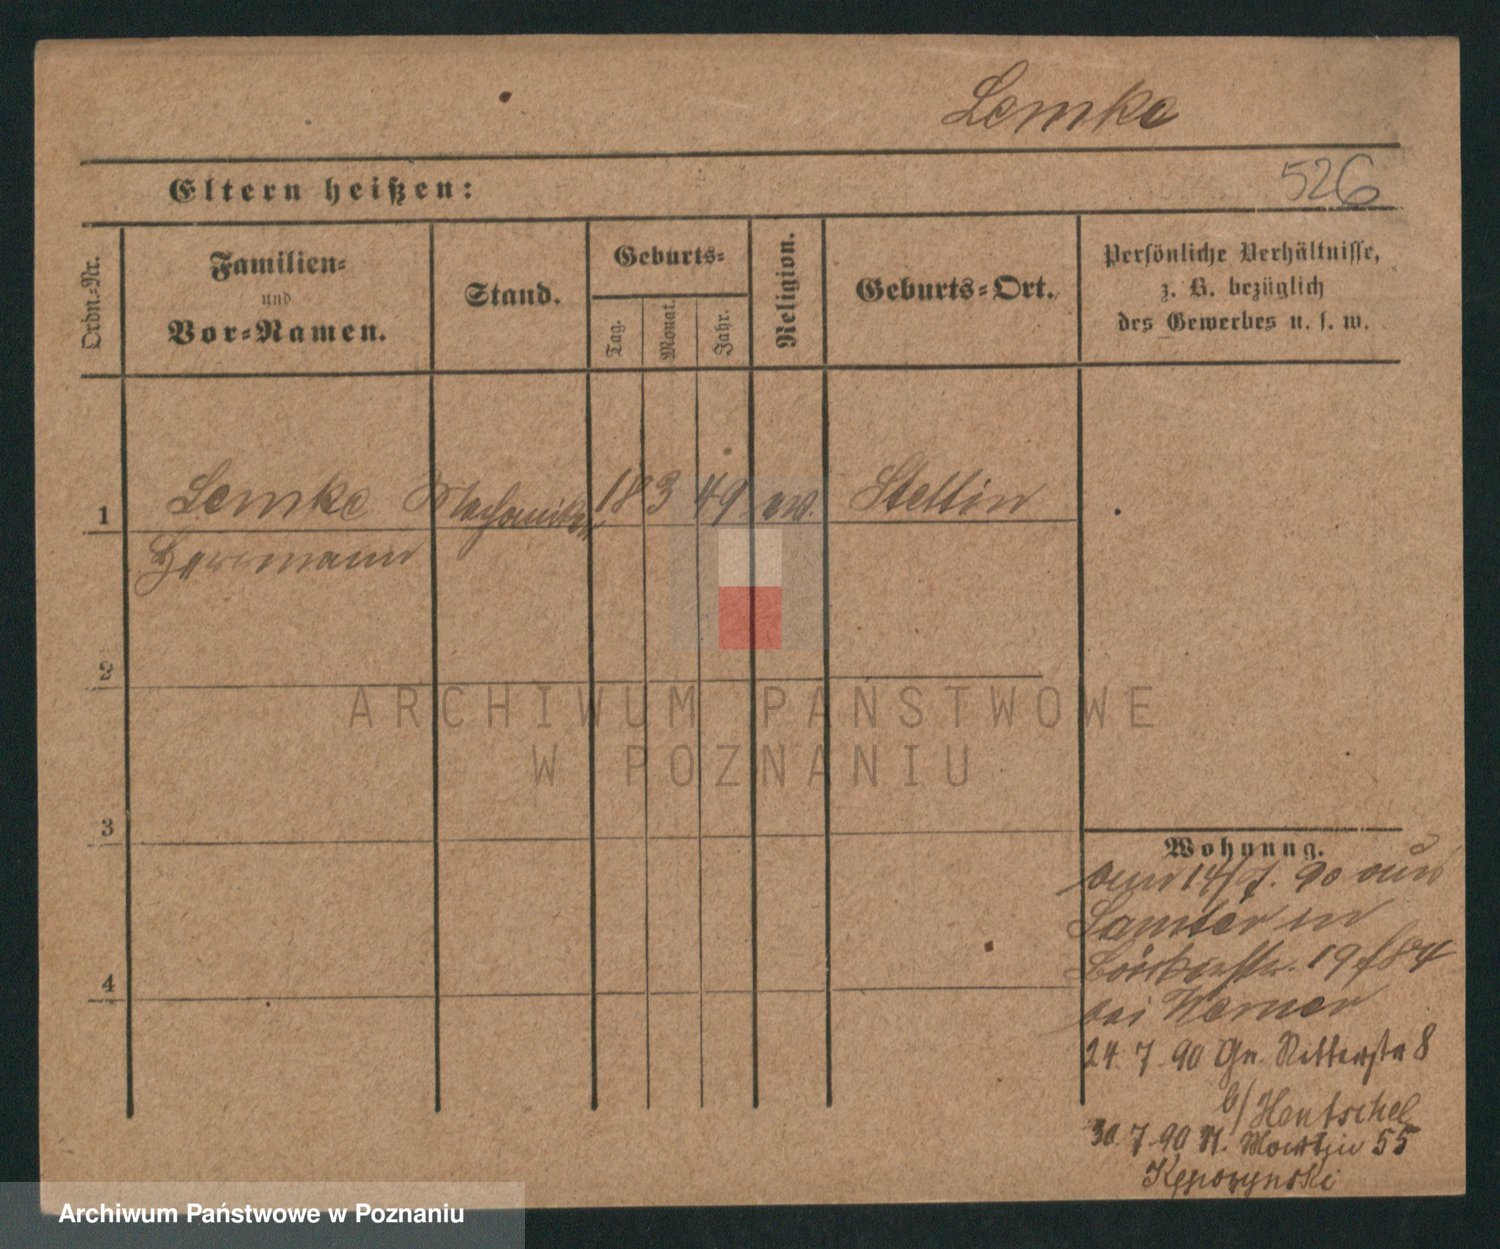 Lemke
Eltern heißen:
526
Ordn.-Nr.
Familien-
und
Vor-Namen.
Stand.
Geburts-
Tag.
Monat.
Jahr.
Religion.
Geburts-Ort.
Persönliche Verhältnisse,
z. B. bezüglich
des Gewerbes u. s. w.
1
Lemke Mechaniker 18 3 49 ev. Stettin
Herrmann
2
ARCHIWUM PAŃSTWOWE
W POZNANIU
3
Wohnung.
14/7. 90 aus
Samter in
19/84
4
bei Werner
24. 7. 90 Gr. Ritterstr 8
b/ Hentschel
30. 7. 90 St. Martin 55
Archiwum Państwowe w Poznaniu